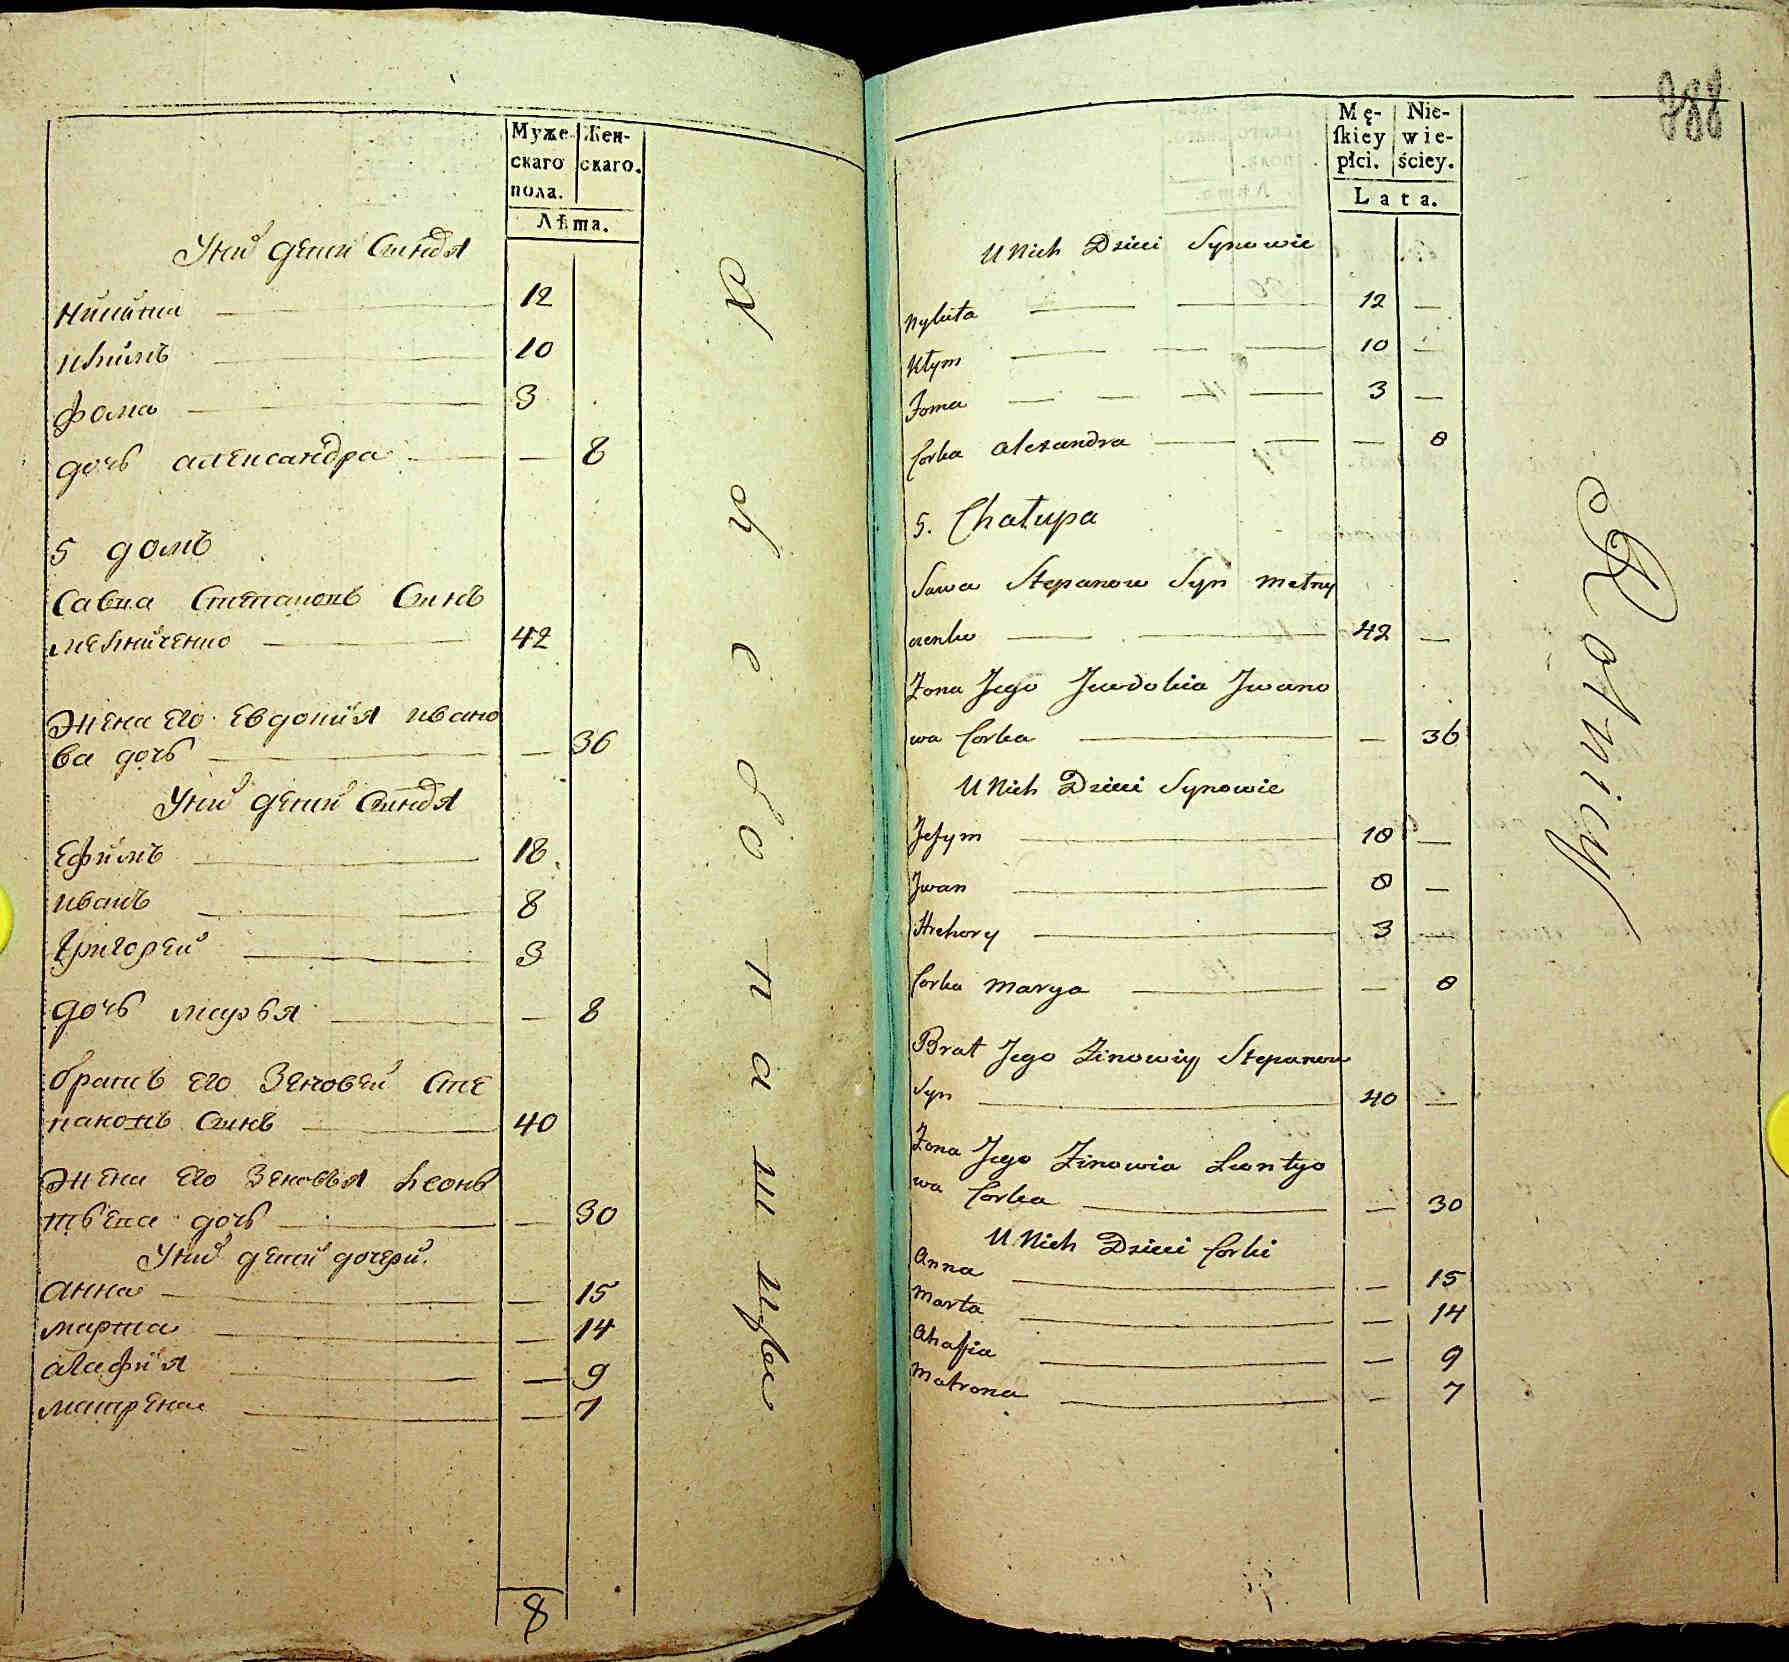 Муже-
скаго
пола.
Жен-
скаго.
Лѣта.
Унихъ дети Синовя
Никита 12
Климъ 10
Фома 3
дочь александра — 8
5 домъ
Савка Степановъ Синъ
мелниченко 42
Жена его Евдокия ивано
ва дочь — 36
Унихъ дети Синовя
Ефимъ 18
иванъ 8
Григорей 3
дочь марья — 8
братъ его Зеновей Сте
пановъ Синъ 40
Жена его Зеновья леонь
тьева дочь — 30
Унихъ дети дочери
анна — 15
марта — 14
агафия — 9
матрена — 7
8
Хлебопашцы
988
Mę-
ſkiey
płci.
Nie-
wie-
ściey.
Lata.
U Nich Dzieci Synowie
Nykita 12 —
Kłym 10 —
Foma 3 —
Corka alexandra — 8
5. Chałupa
Sawa Stepanow Syn Melny
czenko 42 —
Zona Jego Jewdokia Jwano
wa Corka — 36
U Nich Dzieci Synowie
Jefym 18 —
Jwan 8 —
Hrehory 3 —
Corka Marya — 8
Brat Jego Zinowiy Stepanow
Syn 40 —
Zona Jego Zinowia Leontyo
wa Corka — 30
U Nich Dzieci Corki
Anna — 15
Marta — 14
Ahafia — 9
Matrona — 7
Rolnicy